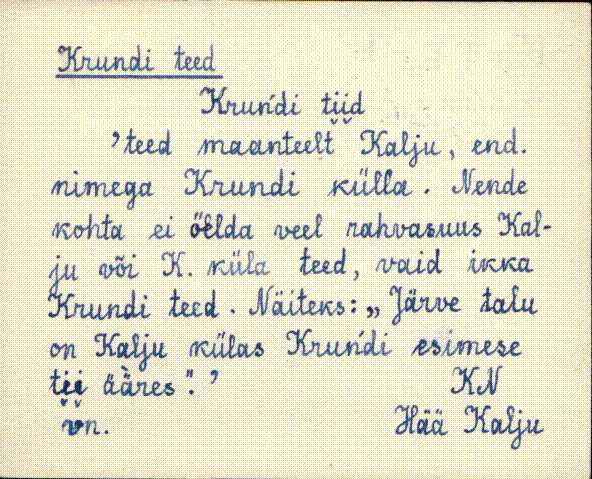 Krundi teed
Kruńdi ti̬i̬d
’teed maanteelt Kalju, end.
nimega Krundi külla. Nende
kohta ei öelda veel rahvasuus Kal-
ju või K. küla teed, vaid ikka
Krundi teed. Näiteks: „Järve talu
on Kalju külas Kruńdi esimese
ti̬i̬ ääres".’
KN
vn.
Hää Kalju